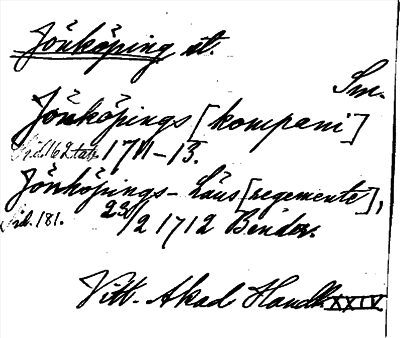 Jönköping st.
Sm.
Jönköpings [kompani]
Sid. 162 1711-13.
Jönköpings- Läns [regemente],
Sid. 181. 23/2 1712 Bender.
Vitt. Akad Handl. XXIV